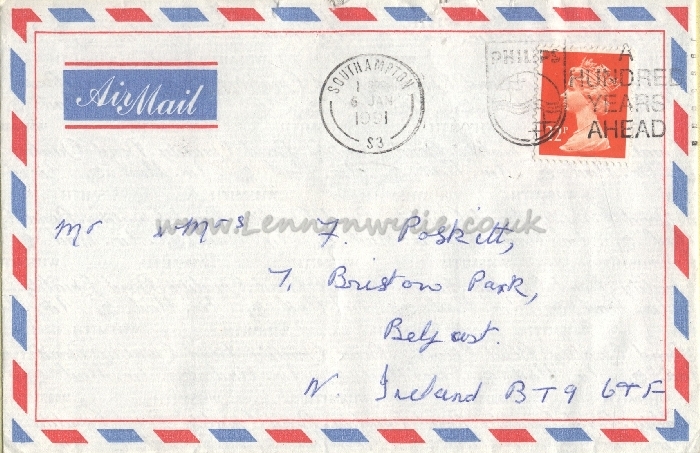 Air Mail
SOUTHAMPTON
6 JAN
1991
S3
PHILIPS
A
HUNDRED
YEARS
AHEAD
22P
www.Lennonwylie.co.uk
Mr & Mrs F. Poskitt,
7, Bristow Park,
Belfast.
N Ireland BT9 6TF